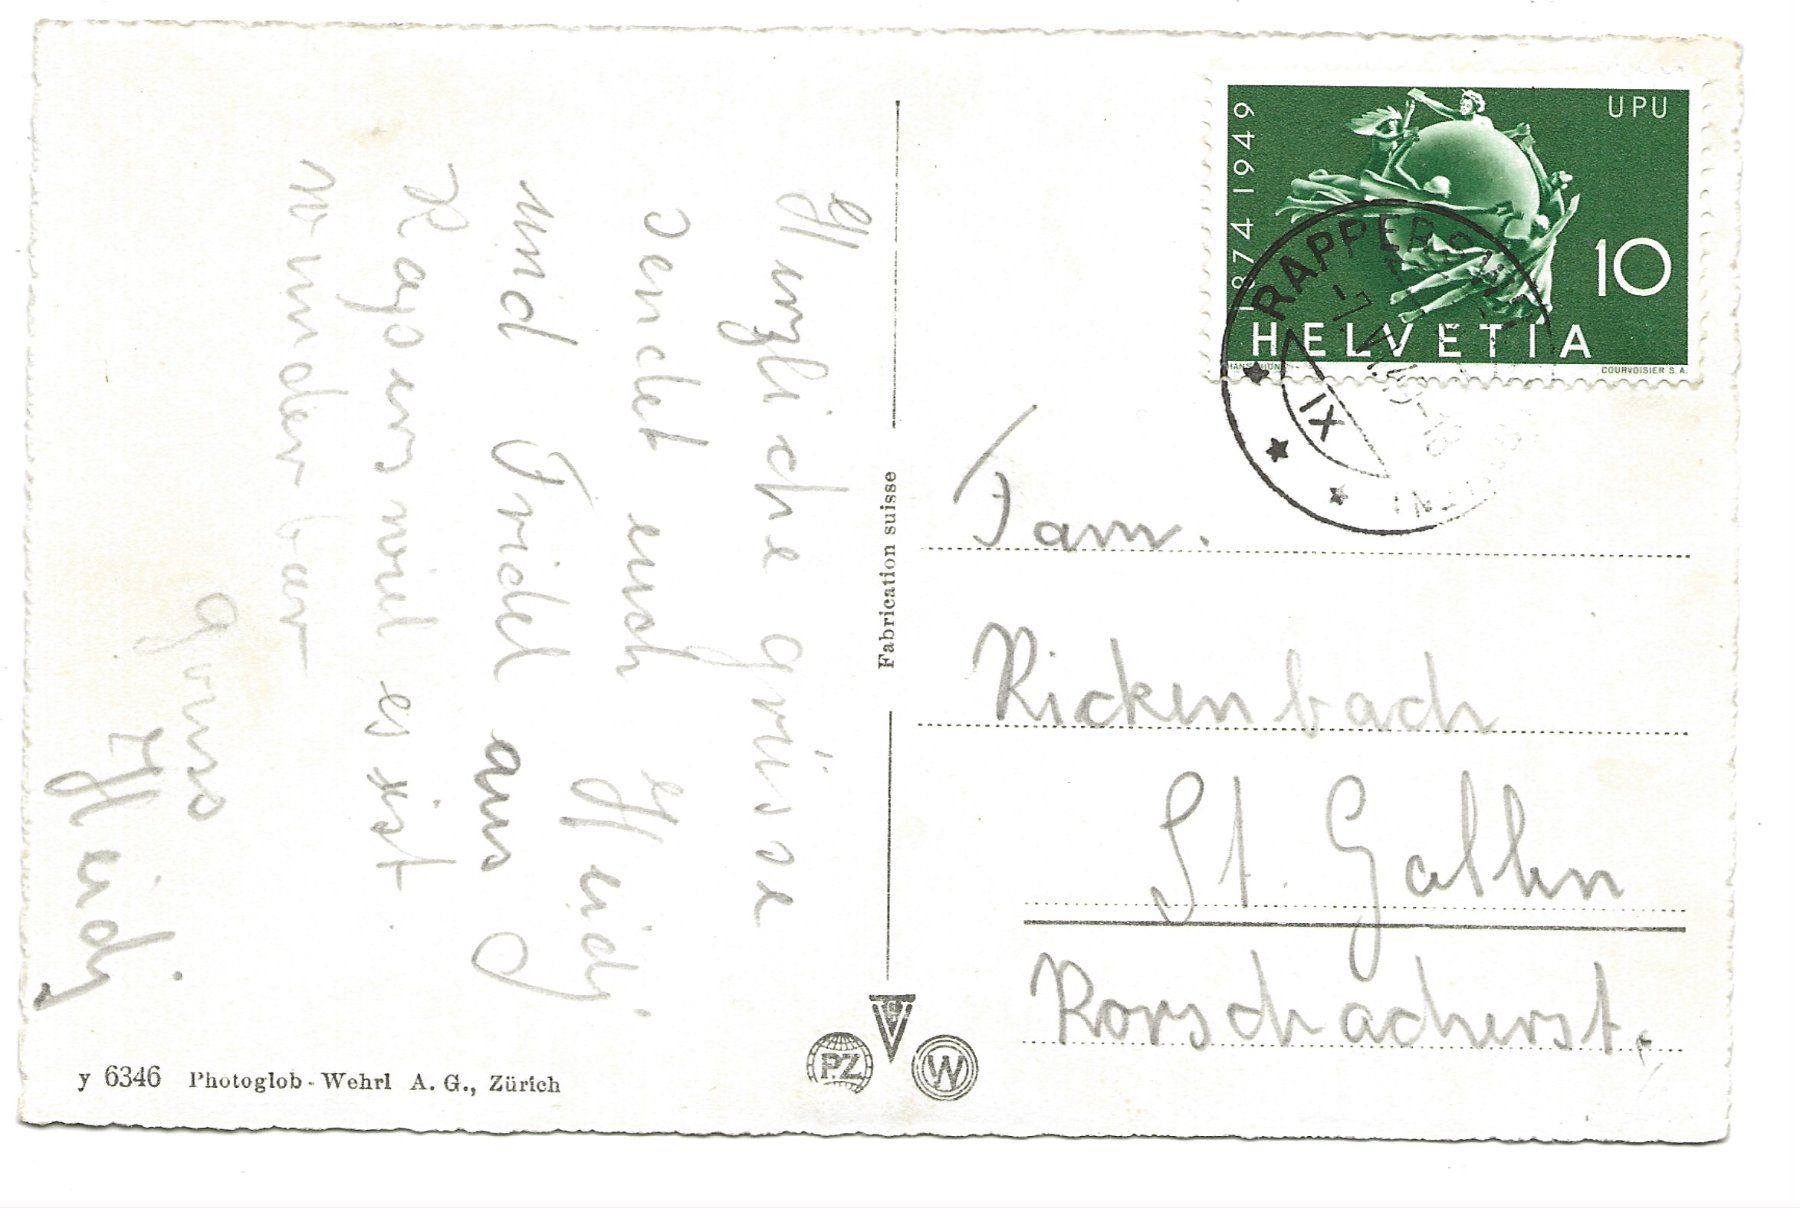 Herzliche grüsse
sendet euch Heidj
und Fridel aus
es ist
wunderbar
gruss
Heidj
Fabrication suisse
y 6346 Photoglob-Wehrli A.G., Zürich
PZ
W
1874 1949
UPU
10
HELVETIA
COURVOISIER S.A.
RAPPERSWIL
IX
Fam.
Rickenbach
St. Gallen
Rorschacherst.